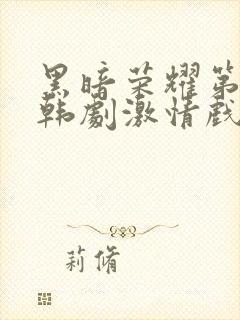 黑暗荣耀第
韩劇激情戲
莉脩